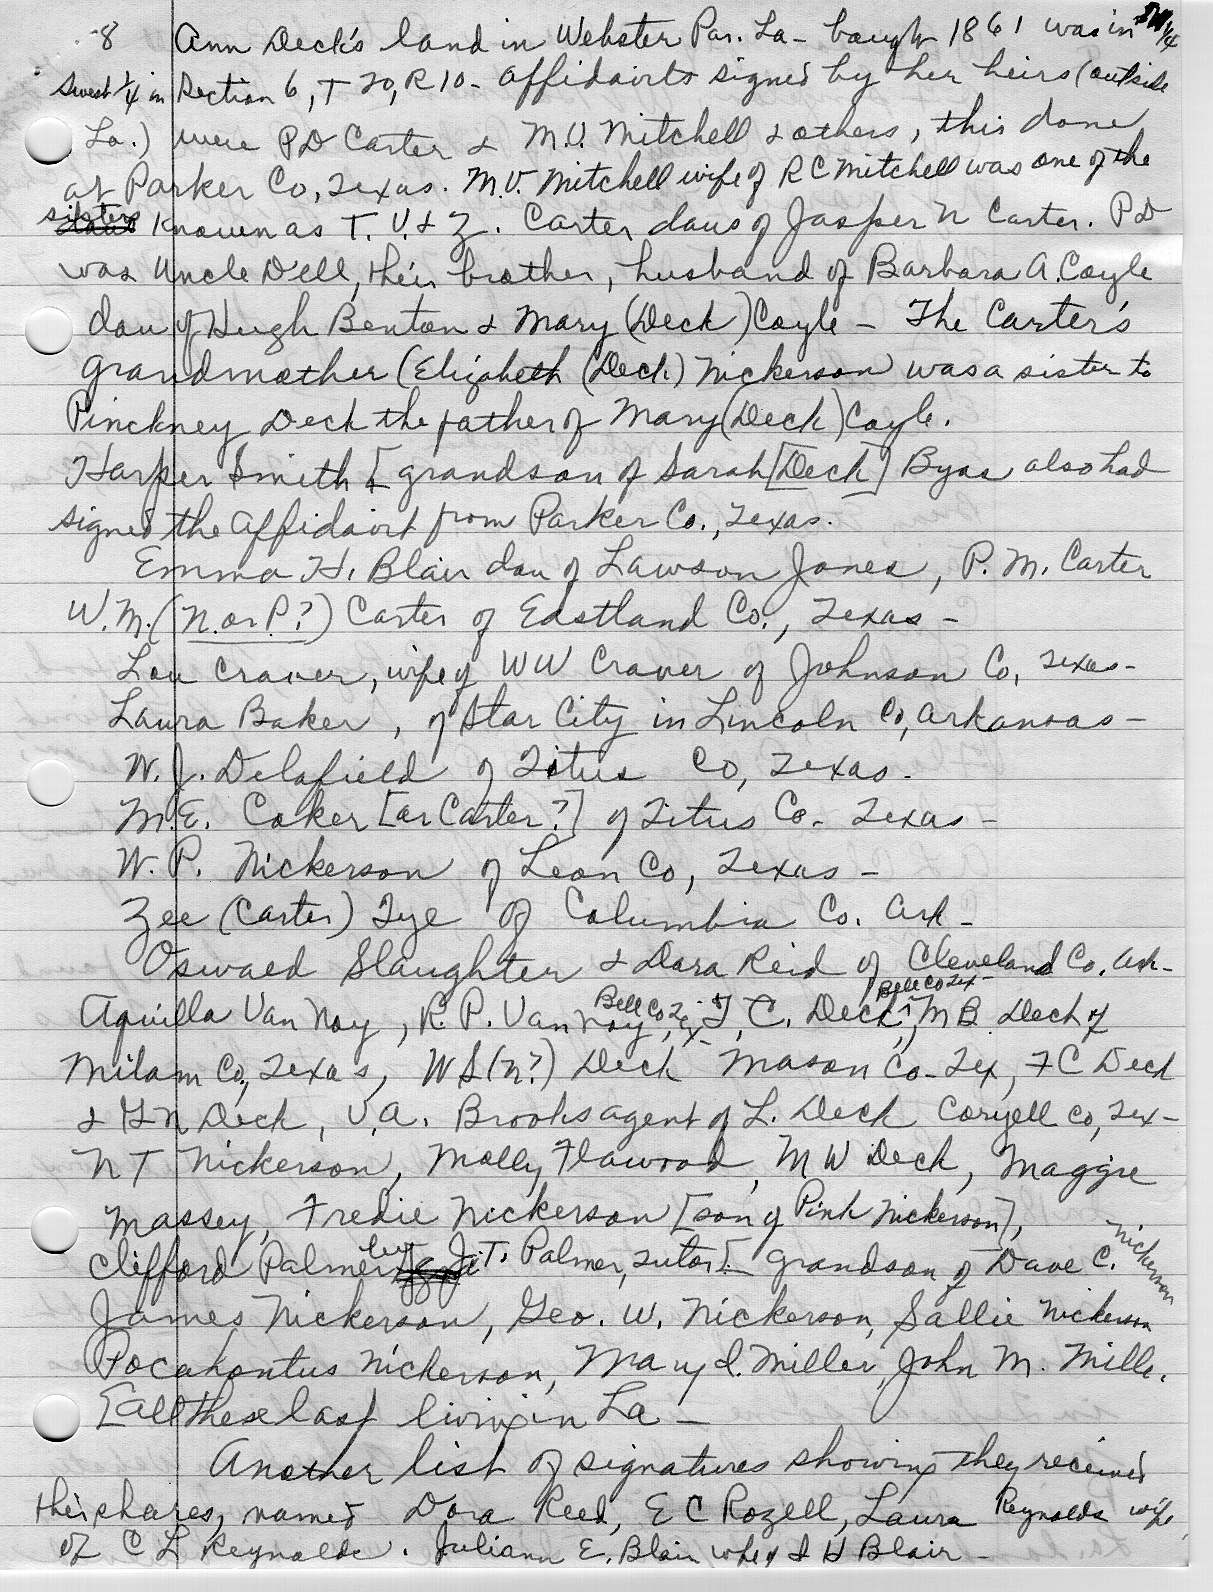 8 Ann Deck's land in Webster Par. La - bough 1861 was in 1/4
Swest 1/4 in Section 6, T 20, R 10 - affidairts signed by her heirs (outside
La.) were PD Carter & M.V. Mitchell & others, this done
at Parker Co, Texas. M.V. Mitchell wife of R C Mitchell was one of the
sisters known as T. V. & Z. Carter daus of Jasper N Carter. PD
was Uncle Dell, their brother, husband of Barbara A. Coyle
dau of Hugh Benton & Mary (Deck) Coyle - The Carter's
grandmother (Elizabeth (Deck) Nickerson) was a sister to
Pinckney Deck the father of Mary (Deck) Coyle.
Harper Smith [grandson of Sarah [Deck] Byas also had
signed the affidairt from Parker Co., Texas.
Emma H. Blair dau of Lawson Jones, P. M. Carter
W. M. (N. or P.?) Carter of Eastland Co., Texas -
Lou Craver, wife of WW Craver of Johnson Co, Texas -
Laura Baker, of Star City in Lincoln Co, Arkansas -
W. J. Delafield of Titus Co, Texas -
M. E. Coker [or Carter?] of Titus Co. Texas -
W. P. Nickerson of Leon Co, Texas -
Zee (Carter) Tye of Columbia Co. Ark -
Oswald Slaughter & Dora Reid of Cleveland Co. Ark -
Aquilla Van Noy, R. P. Van Noy Bell Co Tex -, T. C. Deck Bell Co Tex -, M B Deck of
Milam Co, Texas, W S (N?) Deck Mason Co - Tex, F C Deck
& G N Deck, V. A. Brooks agent of L. Deck Coryell Co, Tex -
N T Nickerson, Molly Flawood, M W Deck, Maggie
Massey, Fredie Nickerson [son of Pink Nickerson],
Clifford Palmer by J. T. Palmer, tutor [grandson of Dave C. Nickerson
James Nickerson, Geo. W. Nickerson, Sallie Nickerson
Pocahontus Nickerson, Mary I. Miller, John M. Mille.
[all these last living in La -
Another list of signatures showing they received
their shares, named Dora Reed, E C Rozell, Laura Reynolds wife
of C L Reynolds. Juliann E. Blair wife of I H Blair -